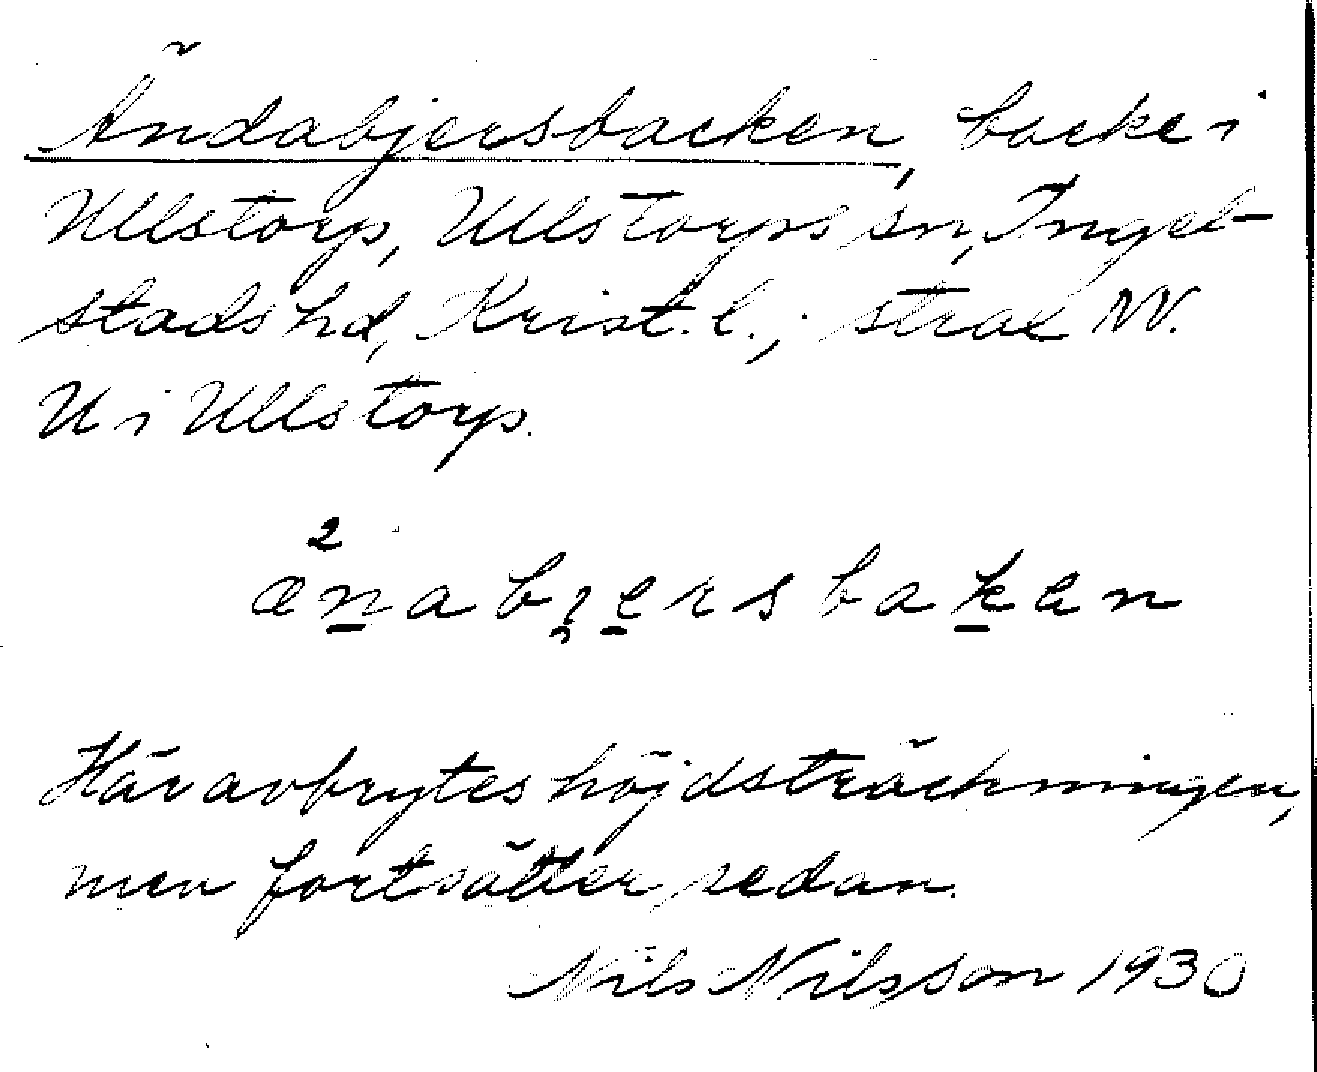 Ändabjersbacken, backe i
Ullstorp, Ullstorps sn, Ingel-
stads hd, Krist. l.; strax NV.
U i Ullstorp.
2
ænabi̯ersbaken
Här avbrytes höjdsträckningen,
men fortsätter sedan.
Nils Nilsson 1930